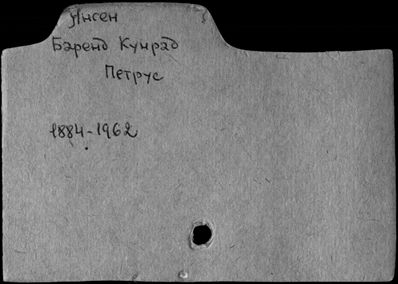 Янсен
Баренд Кунрад
Петрус
1884-1962